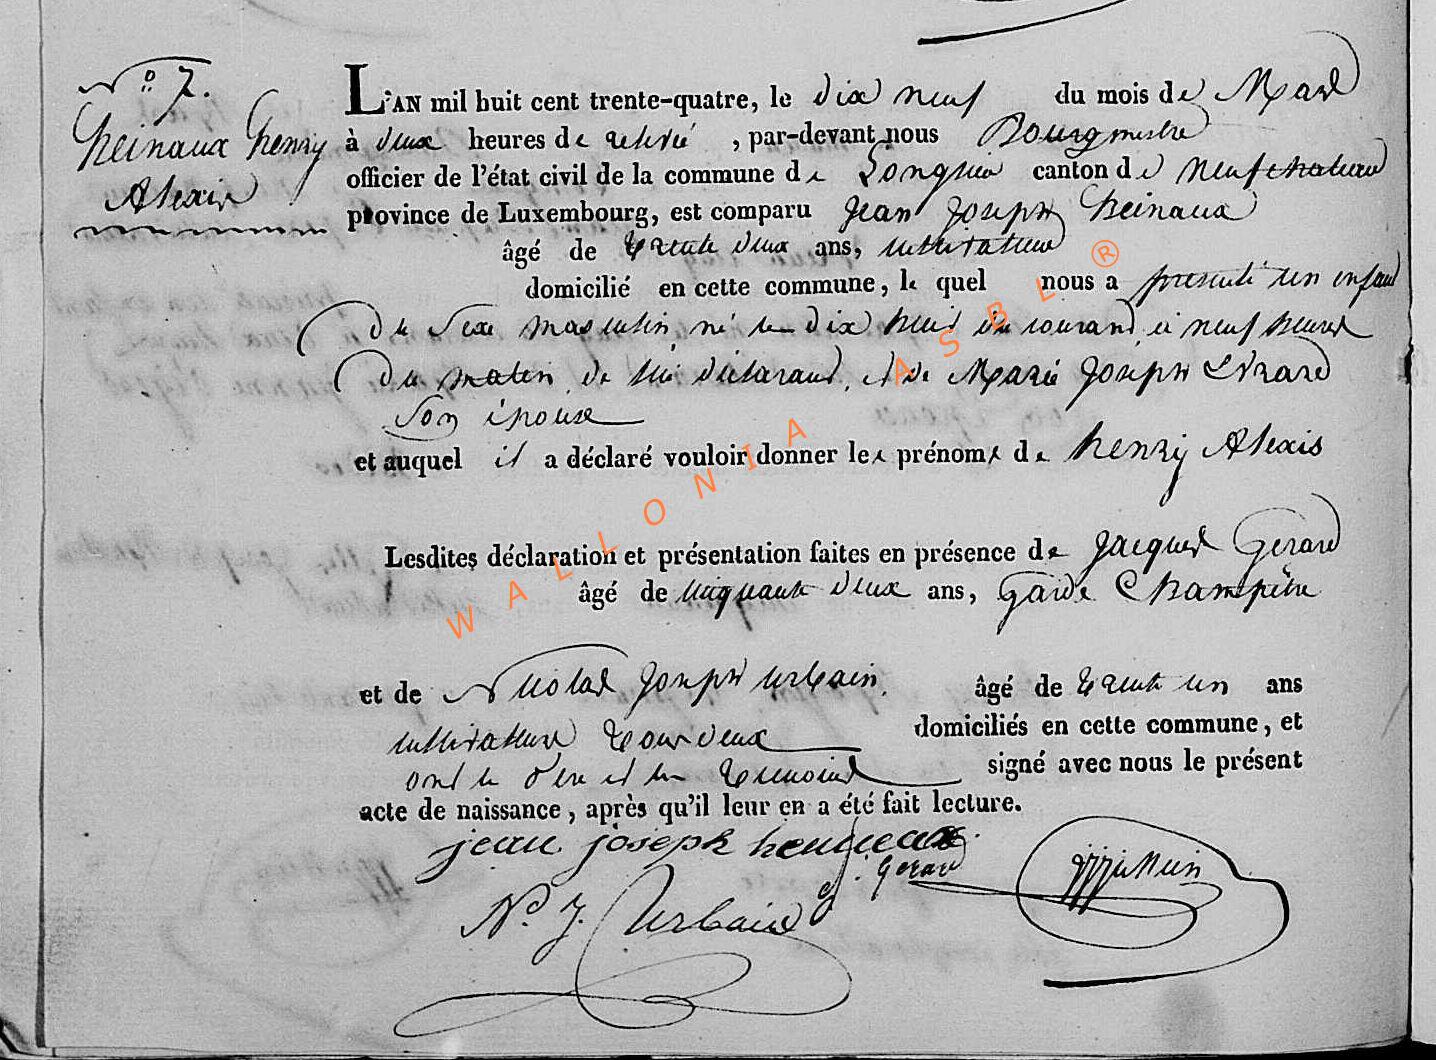 N° 7.
heinaux henry
Alexis
L'AN mil huit cent trente-quatre, le dix neuf du mois de Mars
à deux heures de relevé, par-devant nous Bourgmestre
officier de l'état civil de la commune de Longlier canton de neufchateau
province de Luxembourg, est comparu jean joseph heinaux
âgé de trente deux ans, cultivateur
domicilié en cette commune, le quel nous a presenté un enfant
du sexe masculin né le dix huit du courant à neuf heures
du matin de lui déclarant, et de Marie joseph Evrard
son épouse
et auquel il a déclaré vouloir donner les prénoms de henry Alexis
Lesdites déclaration et présentation faites en présence de jacques Gerard
âgé de cinquante deux ans, Garde Champêtre
et de Nicolas joseph urbain âgé de trente un ans
cultivateur tous deux domiciliés en cette commune, et
ont le père et les temoins signé avec nous le présent
acte de naissance, après qu'il leur en a été fait lecture.
jean joseph henneaux
j. Gerard
N. J. Urbain
WALLONIA ASBL ®